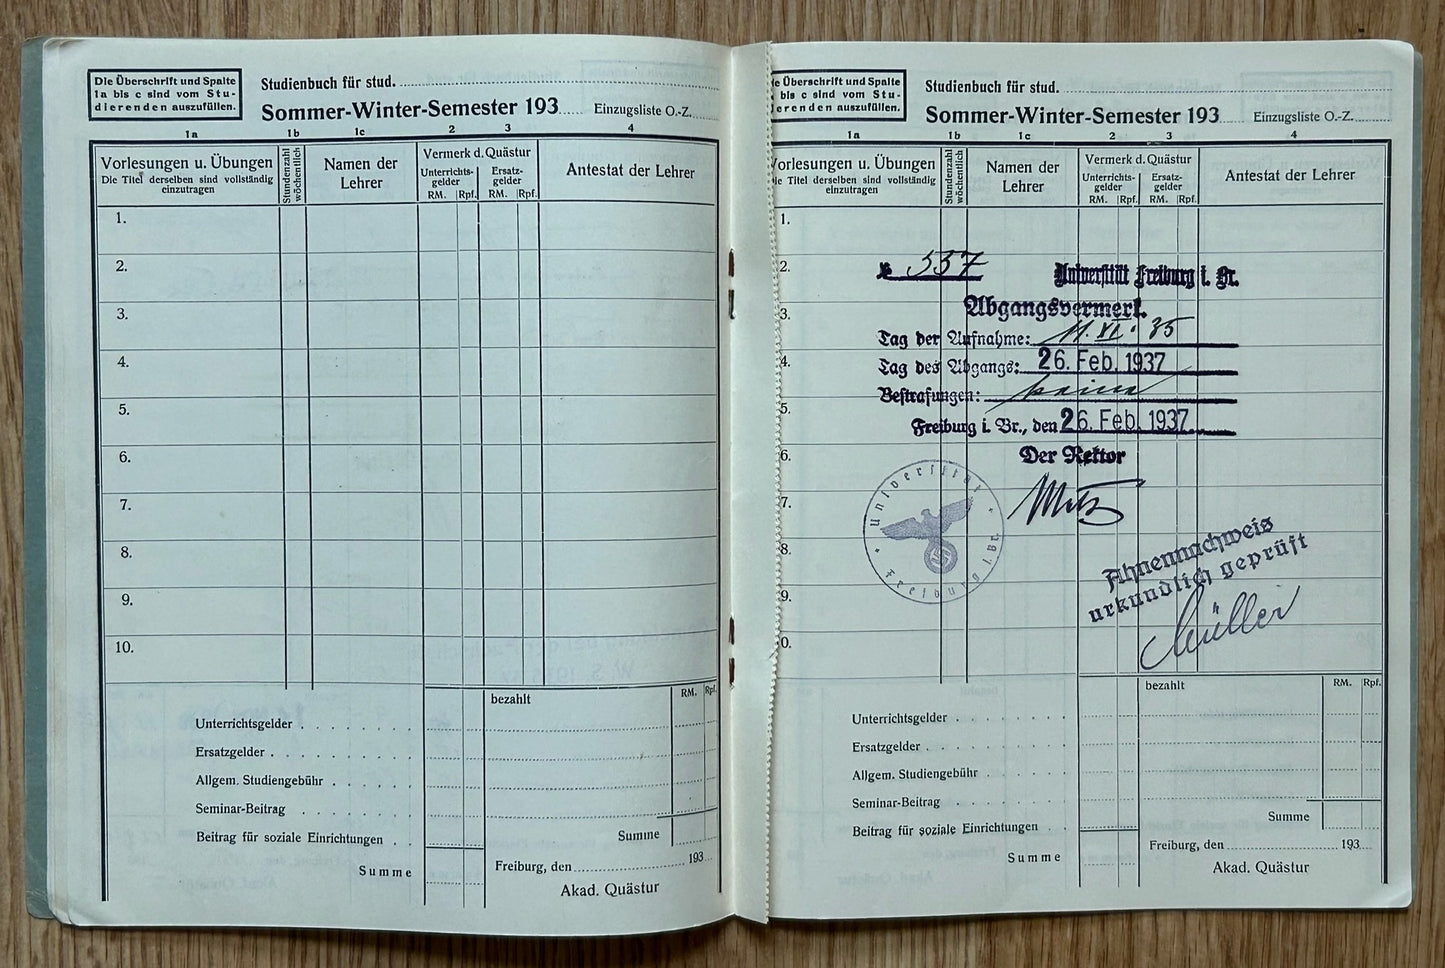 Die Überschrift und Spalte
1a bis c sind vom Stu-
dierenden auszufüllen.
Studienbuch für stud.
Sommer-Winter-Semester 193
Einzugsliste O.-Z.
1a 1b 1c 2 3 4
Vorlesungen u. Übungen
Die Titel derselben sind vollständig
einzutragen
Stundenzahl
wöchentlich
Namen der
Lehrer
Vermerk d. Quästur
Unterrichts-
gelder
RM. Rpf.
Ersatz-
gelder
RM. Rpf.
Antestat der Lehrer
1.
2.
3.
4.
5.
6.
7.
8.
9.
10.
bezahlt
RM. Rpf.
Unterrichtsgelder
Ersatzgelder
Allgem. Studiengebühr
Seminar-Beitrag
Beitrag für soziale Einrichtungen
Summe
Summe
Freiburg, den 193
Akad. Quästur
ie Überschrift und Spalte
bis c sind vom Stu-
ierenden auszufüllen.
Studienbuch für stud.
Sommer-Winter-Semester 193
Einzugsliste O.-Z.
1a 1b 1c 2 3 4
Vorlesungen u. Übungen
ie Titel derselben sind vollständig
einzutragen
Stundenzahl
wöchentlich
Namen der
Lehrer
Vermerk d. Quästur
Unterrichts-
gelder
RM. Rpf.
Ersatz-
gelder
RM. Rpf.
Antestat der Lehrer
1.
2.
3.
4.
5.
6.
7.
8.
9.
0.
№ 537
Universität Freiburg i. Br.
Abgangsvermerk.
Tag der Aufnahme: 11. XI. 35
Tag des Abgangs: 26. Feb. 1937
Bestrafungen: keine
Freiburg i. Br., den 26. Feb. 1937
Der Rektor
Metz
Universität
Freiburg i. Br.
Ahnennachweis
urkundlich geprüft
Müller
bezahlt
RM. Rpf.
Unterrichtsgelder
Ersatzgelder
Allgem. Studiengebühr
Seminar-Beitrag
Beitrag für soziale Einrichtungen
Summe
Summe
Freiburg, den 193
Akad. Quästur